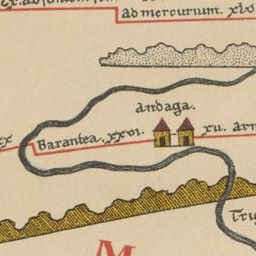 ad mercurium. xlv
andaga.
Barantea. xxvi. xu. arn
Trig
M